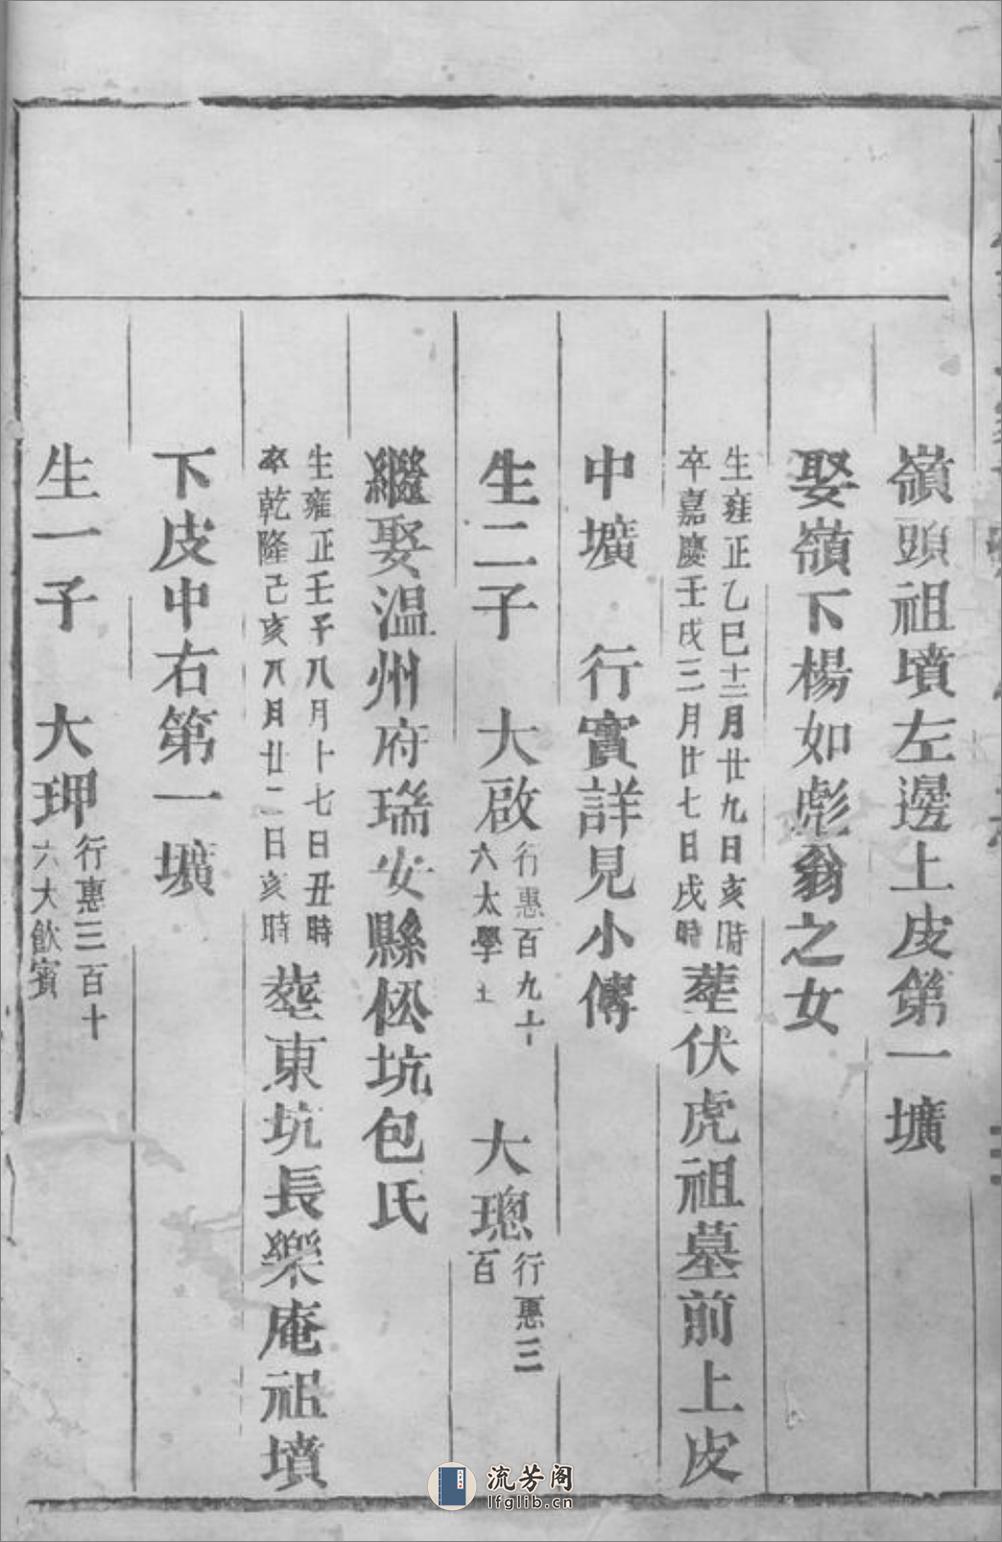 嶺頭祖墳左邊上皮第一壙
娶嶺下楊如彪翁之女
生雍正乙巳十二月廿九日亥時
卒嘉慶壬戌三月廿七日戌時
葬伏虎祖墓前上皮
中壙 行實詳見小傳
生二子 大啟 行惠百九十六太學士 大璁 行惠三百
繼娶温州府瑞安縣松坑包氏
生雍正壬子八月十七日丑時
卒乾隆己亥八月廿二日亥時
葬東坑長樂庵祖墳
下皮中右第一壙
生一子 大玾 行惠三百十六大飲賓
流芳阁
lfglib.cn